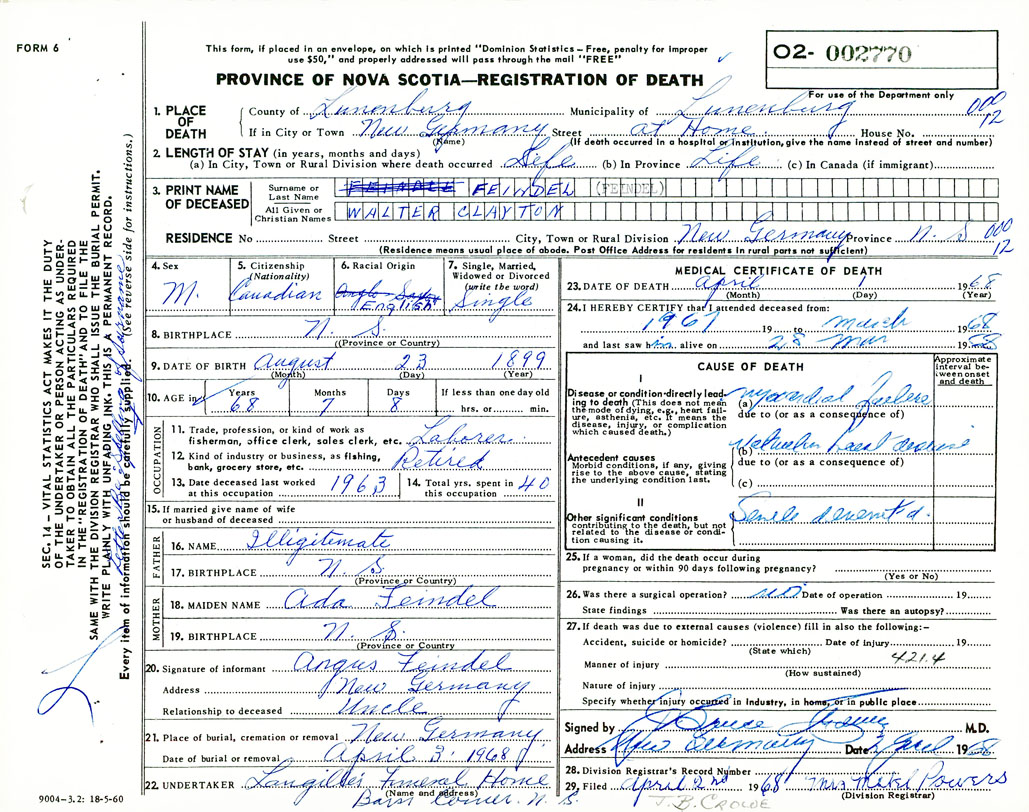 FORM 6
This form, if placed in an envelope, on which is printed "Dominion Statistics – Free, penalty for improper
use $50," and properly addressed will pass through the mail "FREE"
O2- 002770
For use of the Department only
PROVINCE OF NOVA SCOTIA—REGISTRATION OF DEATH
1. PLACE OF DEATH
County of Lunenburg Municipality of Lunenburg 000 12
If in City or Town New Germany Street at Home. House No.
(Name) (If death occurred in a hospital or institution, give the name instead of street and number)
2. LENGTH OF STAY (in years, months and days)
(a) In City, Town or Rural Division where death occurred Life (b) In Province Life (c) In Canada (if immigrant)
3. PRINT NAME OF DECEASED
Surname or Last Name FEINDEL (FEINDEL)
All Given or Christian Names WALTER CLAYTON
RESIDENCE No Street City, Town or Rural Division New Germany Province N. S 000 12
(Residence means usual place of abode. Post Office Address for residents in rural parts not sufficient)
4. Sex M.
5. Citizenship (Nationality) Canadian
6. Racial Origin English
7. Single, Married, Widowed or Divorced (write the word) Single
8. BIRTHPLACE N. S.
(Province or Country)
9. DATE OF BIRTH August 23 1899
(Month) (Day) (Year)
10. AGE in Years 68 Months 7 Days 8 If less than one day old hrs. or min.
OCCUPATION
11. Trade, profession, or kind of work as fisherman, office clerk, sales clerk, etc. Laborer.
12. Kind of industry or business, as fishing, bank, grocery store, etc. Retired
13. Date deceased last worked at this occupation 1963
14. Total yrs. spent in this occupation 40
15. If married give name of wife or husband of deceased
FATHER
16. NAME Illigitemate
17. BIRTHPLACE N. S.
(Province or Country)
MOTHER
18. MAIDEN NAME Ada Feindel
19. BIRTHPLACE N. S.
(Province or Country)
20. Signature of informant Angus Feindel
Address New Germany
Relationship to deceased Uncle
21. Place of burial, cremation or removal New Germany
Date of burial or removal April 3 1968
22. UNDERTAKER Langilles Funeral Home
(Name and address) Barss Corner. N. S.
MEDICAL CERTIFICATE OF DEATH
23. DATE OF DEATH April 1 1968
(Month) (Day) (Year)
24. I HEREBY CERTIFY that I attended deceased from:
1967 19 to March 1968
and last saw him alive on 28 Mar 1968
CAUSE OF DEATH
Approximate interval between onset and death
I
Disease or condition directly leading to death (This does not mean the mode of dying, e.g., heart failure, asthenia, etc. It means the disease, injury, or complication which caused death.)
(a) Myocardial
due to (or as a consequence of)
Antecedent causes
Morbid conditions, if any, giving rise to the above cause, stating the underlying condition last.
(b)
due to (or as a consequence of)
(c)
II
Other significant conditions
contributing to the death, but not related to the disease or condition causing it.
Senile
25. If a woman, did the death occur during pregnancy or within 90 days following pregnancy?
(Yes or No)
26. Was there a surgical operation? no Date of operation 19
State findings Was there an autopsy?
27. If death was due to external causes (violence) fill in also the following:–
Accident, suicide or homicide? Date of injury 19
(State which)
Manner of injury 421.4
(How sustained)
Nature of injury
Specify whether injury occurred in industry, in home, or in public place
Signed by J. Bruce Crowe M.D.
Address New Germany Date 2 April 1968
28. Division Registrar's Record Number
29. Filed April 2nd 1968 Mrs Mikel Powers
(Division Registrar)
J.B. CROWE
SEC. 14 – VITAL STATISTICS ACT MAKES IT THE DUTY
OF THE UNDERTAKER OR PERSON ACTING AS UNDERTAKER
TO OBTAIN ALL THE PARTICULARS REQUIRED
IN THE "REGISTRATION OF DEATH" AND TO FILE THE
SAME WITH THE DIVISION REGISTRAR WHO SHALL ISSUE THE BURIAL PERMIT.
WRITE PLAINLY WITH UNFADING INK. THIS IS A PERMANENT RECORD.
Every item of information should be carefully supplied. (See reverse side for instructions.)
9004–3.2: 18-5-60